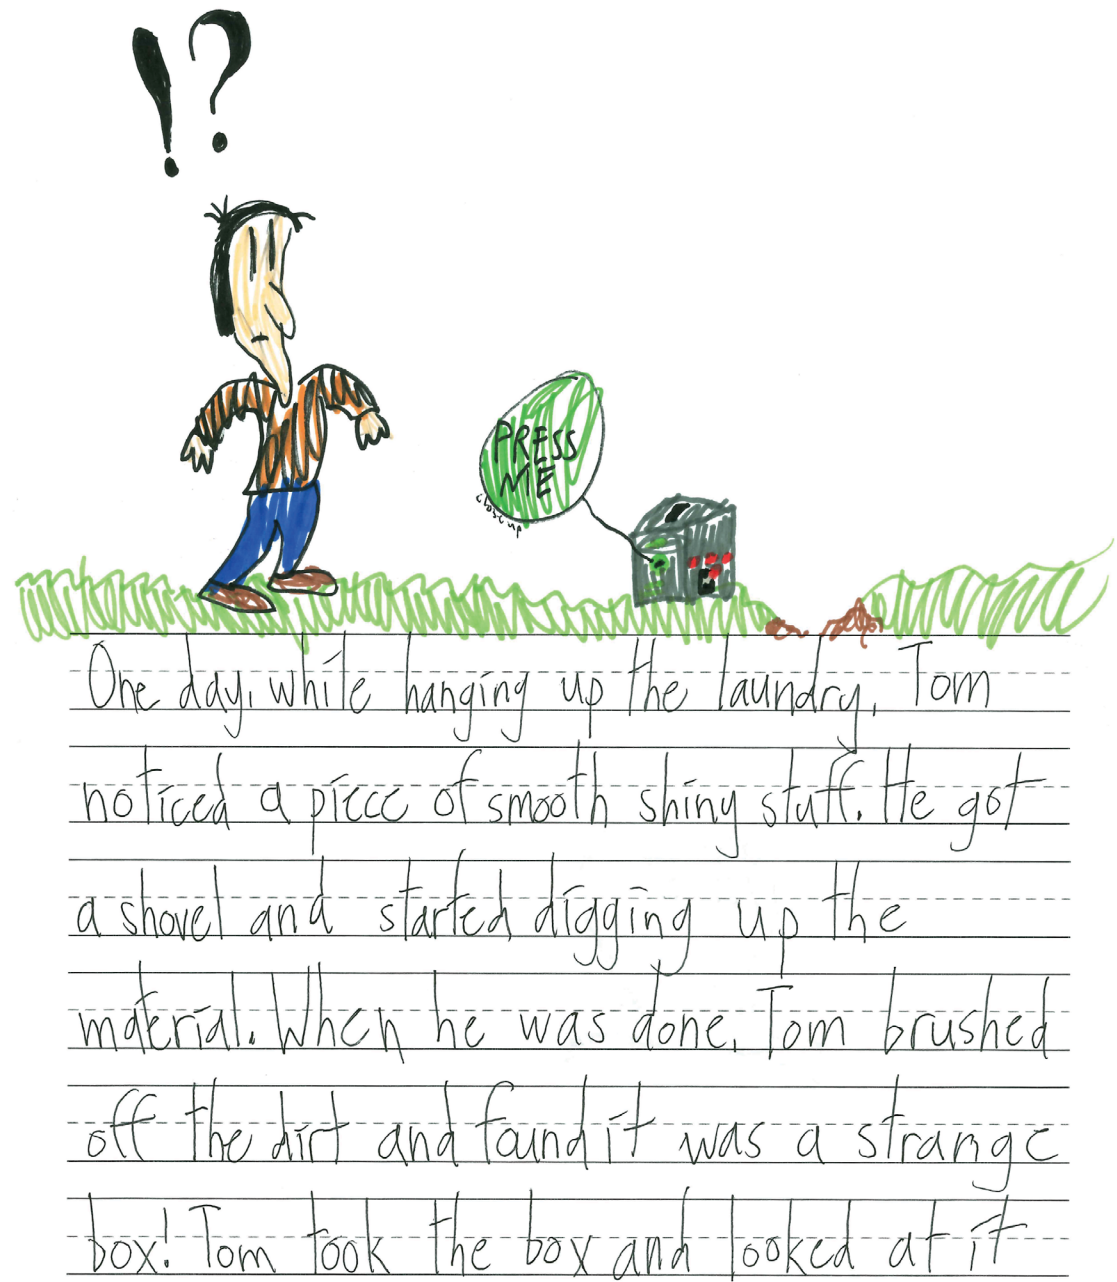 !?
PRESS
ME
close up
One day, while hanging up the laundry, Tom
noticed a piece of smooth shiny stuff. He got
a shovel and started digging up the
material. When he was done, Tom brushed
off the dirt and found it was a strange
box! Tom took the box and looked at it